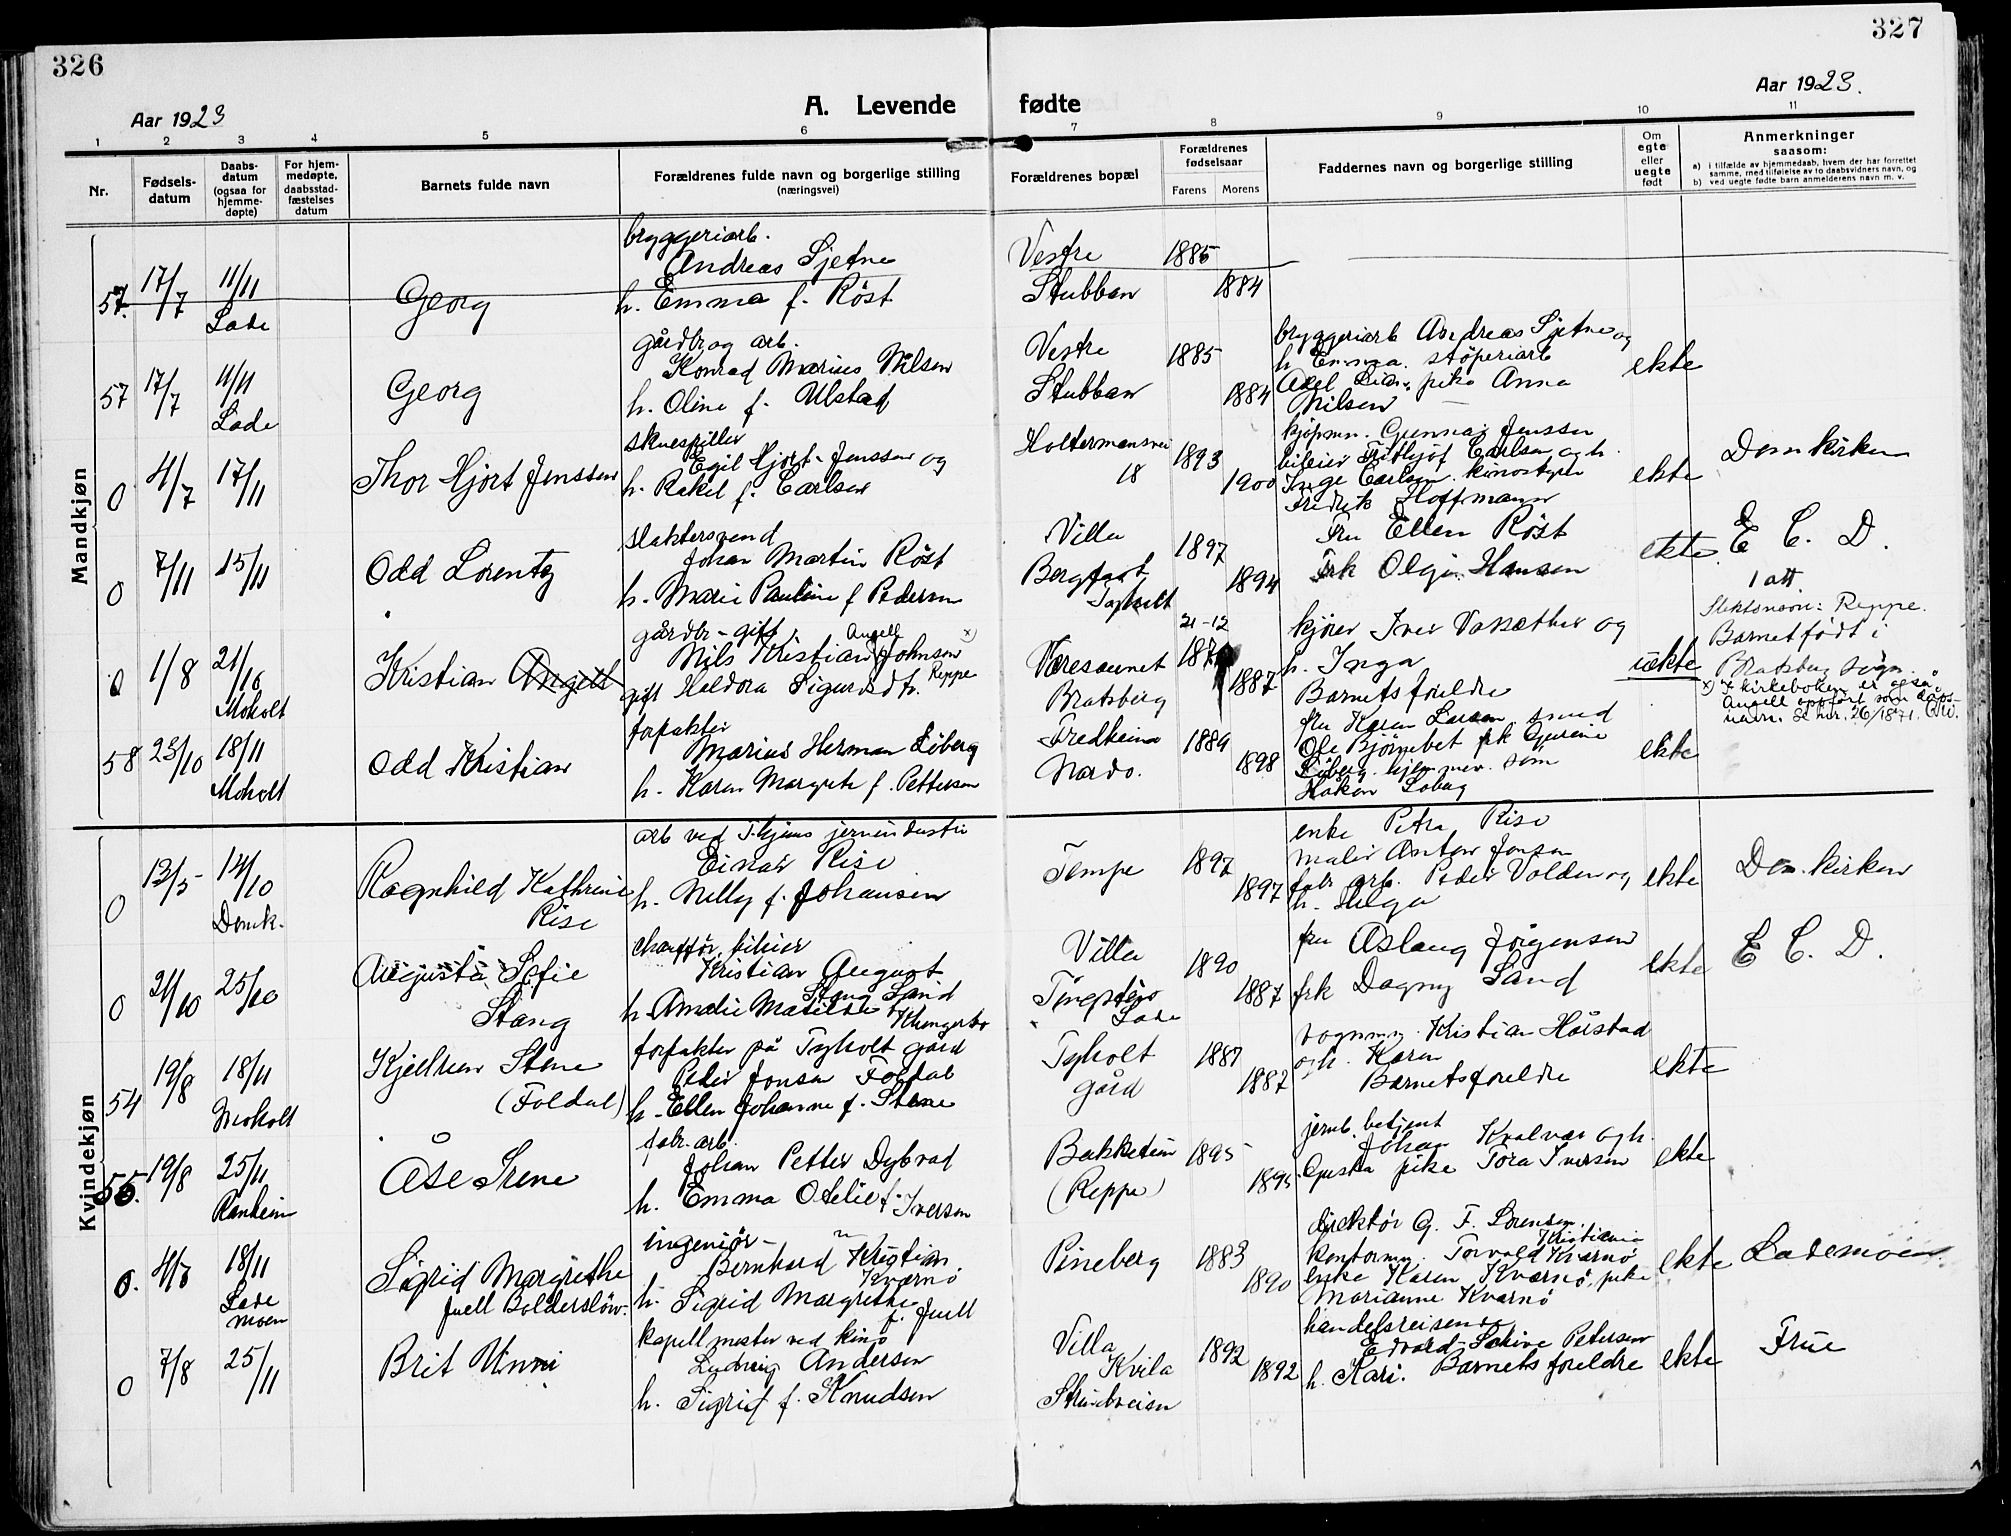 326
327
Aar 1923
A. Levende fødte
Aar 1923.
1 2 3 4 5 6 7 8 9 10 11
Nr.
Fødsels-
datum
Daabs-
datum
(ogsaa for
hjemme-
døpte)
For hjem-
medøpte,
daabsstad-
fæstelses
datum
Barnets fulde navn
Forældrenes fulde navn og borgerlige stilling
(næringsvei)
Forældrenes bopæl
Forældrenes
fødselsaar
Farens Morens
Faddernes navn og borgerlige stilling
Om
egte
eller
uegte
født
Anmerkninger
saasom:
a) i tilfælde av hjemmedaab, hvem der har forrettet
samme, med tilføielse av to daabsvidners navn, og
b) ved uegte fødte barn anmelderens navn m. v.
Mandkjøn
57. 17/7 11/11
Lade
Georg
bryggeriarb.
Andreas Sjetne
h. Emma f. Röst
Vestre
Stubban
1885
1884
57 17/7 11/11
Lade
Georg
gårdbr og arb.
Konrad Marius Nilsen
h. Oline f. Ulstad
Vestre
Stubban
1885
1884
bryggeriarb Andreas Sjetne og
h Emma. støperiarb
Axel Lian, pike Anna
Nilsen
ekte
0 4/7 17/11
Thor Hjort Jenssen
skuespiller
Egil Hjort-Jenssen og
h. Rakel f. Carlsen
Holtermansvei
18
1893
1900
kjøpmn. Gunnar Jenssen
bileier Frithjof Carlsen og h.
Inge Carlsen. kinostyrer
Fredrik Hoffmann
ekte
Domkirken
0 7/11 15/11
Odd Lorentz
slaktersvend
Johan Martin Röst
h. Marie Pauline f Pedersen
Villa
Bergfast
Tyholt
1897
1894
Fru Ellen Röst
Frk Olga Hansen
ekte
E. C. D.
1 att.
0 1/8 21/10
Moholt
Kristian Angell
gårdbr - gift
Nils Kristian Angell Johnsen x)
Reppe
gift Haldora Sigurdsdtr.
Væresaunet
Bratsberg
21-12
187
1887
kjører Iver Vassæther og
h. Inga
Barnets foreldre
uekte
Slektsnavn: Reppe.
Barnet født i
Bratsberg sogn.
x) I kirkeboken er også
Angell oppført som døps-
navn. Se nr. 26/1871.
58 23/10 18/11
Moholt
Odd Kristian
forpakter
Marius Herman Löberg
h. Karen Margrete f. Pettersen
Fredheim
Nardo.
1889
1898
fru Karen Larsen, smed
Ole Bjørnebet frk Gurine
Löberg. hjemmev. søn
Håkon Löberg
ekte
Kvindekjøn
0 13/5 14/10
Domk.
Ragnhild Kathrine
Rise
arb ved T.hjems jernindustri
Einar Rise
h. Nelly f. Johansen
Tempe
1897
1897
enke Petra Rise
maler Anton Jonsen
fabr arb. Peder Volden og
h. Helga
ekte
Domkirken
0 21/10 25/10
Augusta Sofie
Stang
chauffør, bileier
Kristian August
Stang Sand
h. Amalie Matilde Klungerbo
Villa
Tingsteio
Lade
1890
1887
fru Aslaug Jörgensen
frk Dagny Sand
ekte
E C. D.
54 19/8 18/11
Moholt
Kjellrun Stene
(Foldal)
forpakter på Tyholt gård
Peder Jonsen Foldal
h. Ellen Johanne f. Stene
Tyholt
gård
1887
1887
vognmn. Kristian Hårstad
og h. Karen
Barnets foreldre
ekte
55. 19/8 25/11
Ranheim
Åse Irene
fabr. arb.
Johan Petter Dybvad
h. Emma Otelie f. Iversen
Bakketun
(Reppe)
1895
1895
jernb. betjent
Johan Kvalvær og h.
Gusta pike Tora Iversen
ekte
0. 4/8 18/11
Lade
moen
Sigrid Margrethe
Juell Bolderslöw.
ingeniör -
Bernhard Kristian
Kværnö
h. Sigrid Margrethe
f. Juell
Pineberg
1883
1890
direktör G. F. Lorensen,
Kristiania
kontormn. Torvald Kværnö
enke Karen Kværnö, pike
Marianne Kværnö
ekte
Lademoen
0 7/8 25/11
Brit Unni
kapellmester ved kino
Ludvig Andersen
h. Sigrid f. Knudsen
Villa
Kvila
Strindveien
1892
1892
handelsreisende
Edvard Schive Petersen
h. Kari. Barnets foreldre
ekte
Frue